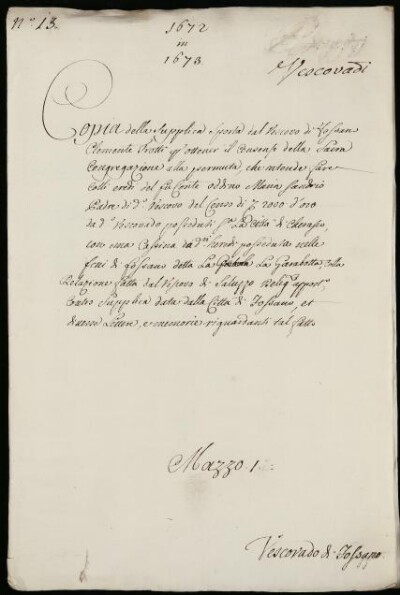 n.º 13.
1672
in
1673
Vescovadi
Copia della Supplica sporta dal Vescovo di Fossano
Clemente per ottener il Consenso della Sacra
Congregazione alla permuta, che intende fare
colli eredi del fu Conte Oddino Maria Sandrio
Padre di d.º Vescovo del Censo di d'oro
da d.º Vescovado posseduti la Città di Cherasco,
con una Cassina da d.ti heredi posseduta nelle
fini di Fossano detta La La Garabotta, colla
Relazione fatta dal Vescovo di Saluzzo
Contro Supplica data dalla Città di Fossano, et
diverse Lettere, e memorie riguardanti tal fatto
Mazzo 1.
Vescovado di Fossano